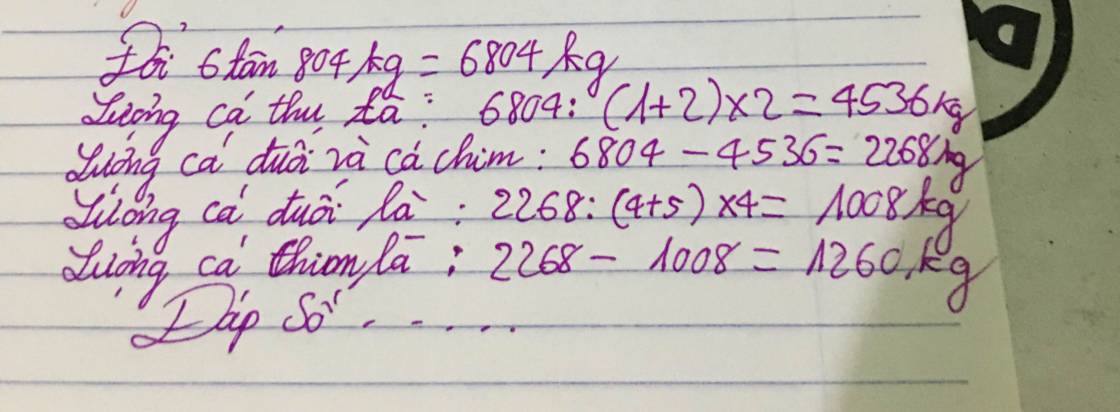 Đổi 6 tấn 804 kg = 6804 kg
Lượng cá thu là : 6804 : (1+2) x 2 = 4536 kg
Lượng cá đuối và cá chim : 6804 - 4536 = 2268 kg
Lượng cá đuối là : 2268 : (4+5) x 4 = 1008 kg
Lượng cá chim là : 2268 - 1008 = 1260 kg
Đáp số . - . . . .